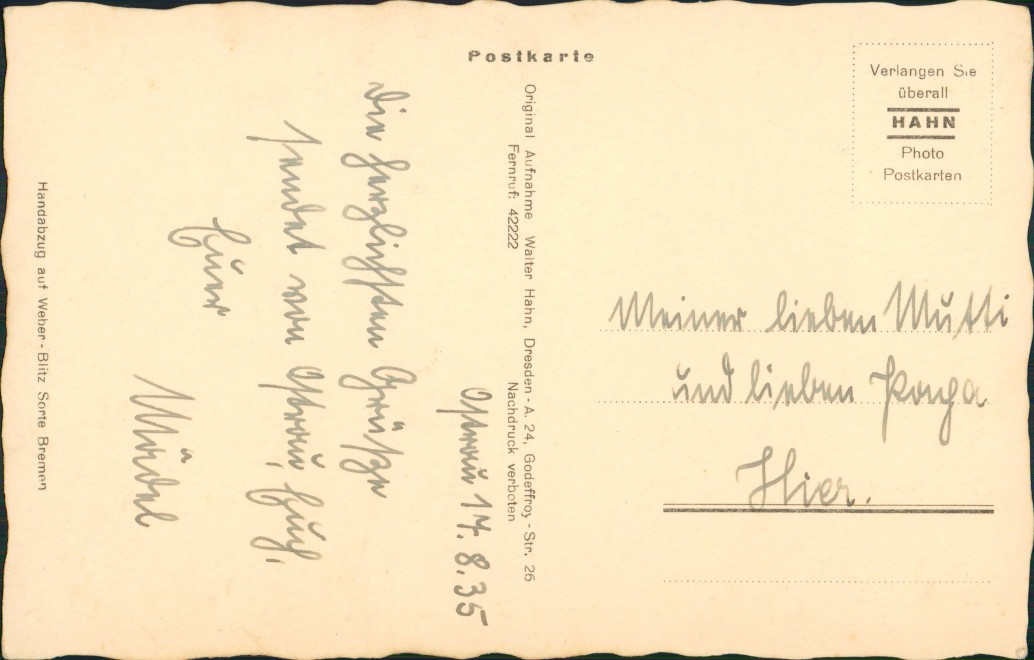 Postkarte
Verlangen Sie
überall
HAHN
Photo
Postkarten
Ostrau 17. 8. 35
Die herzlichsten Grüße
sendet von Ostrau, Euch,
Euer
Mädel
Original Aufnahme Walter Hahn, Dresden - A. 24, Godeffroy - Str. 26
Fernruf: 42222 Nachdruck verboten
Handabzug auf Weber - Blitz Sorte Bremen
Meiner lieben Mutti
und lieben Papa
Hier.